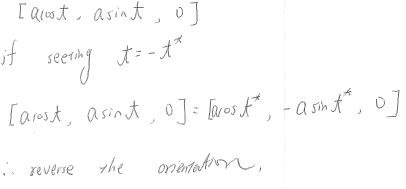 [acost, asint, 0]
if seeting t=-t*
[acost, asint, 0]=[acost*, -asint*, 0]
∴ reverse the orientation.